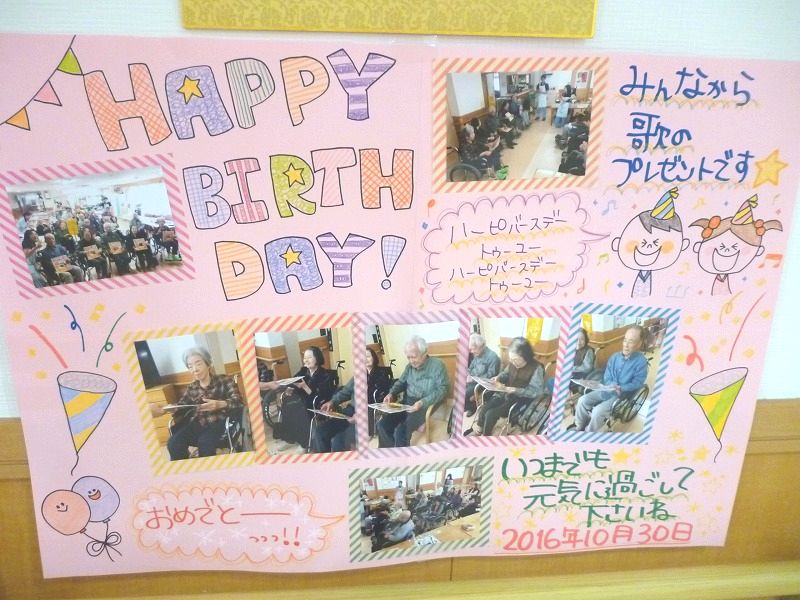 HAPPY
BIRTH
DAY!
みんなから
歌の
プレゼントです
ハーピバースデー
トゥーユー
ハーピバースデー
トゥーユー
おめでとーー
っっっ!!
いつまでも
元気に過ごして
下さいね
2016年10月30日